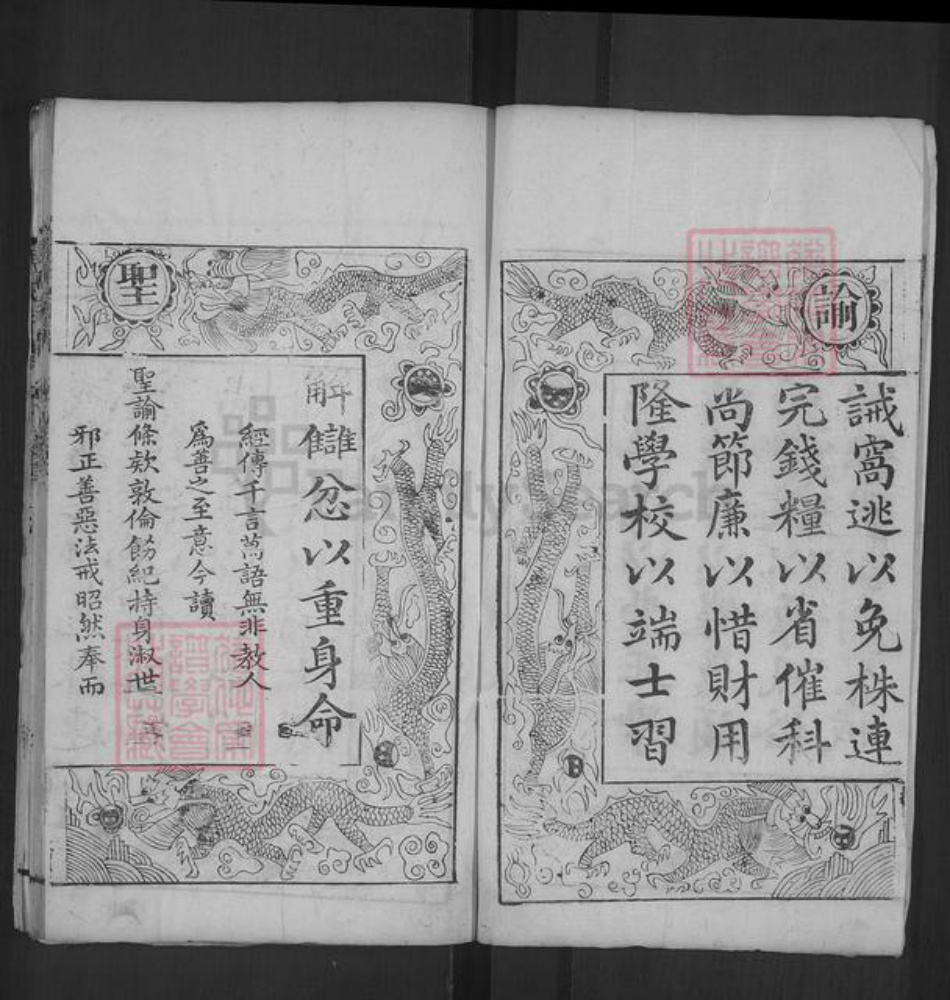 諭
誡窩逃以免株連
完錢糧以省催科
尚節廉以惜財用
隆學校以端士習
聖
解讎忿以重身命
經傳千言萬語無非教人
爲善之至意今讀
聖諭條欵敦倫飭紀持身淑世
邪正善惡法戒昭然奉而
FamilySearch